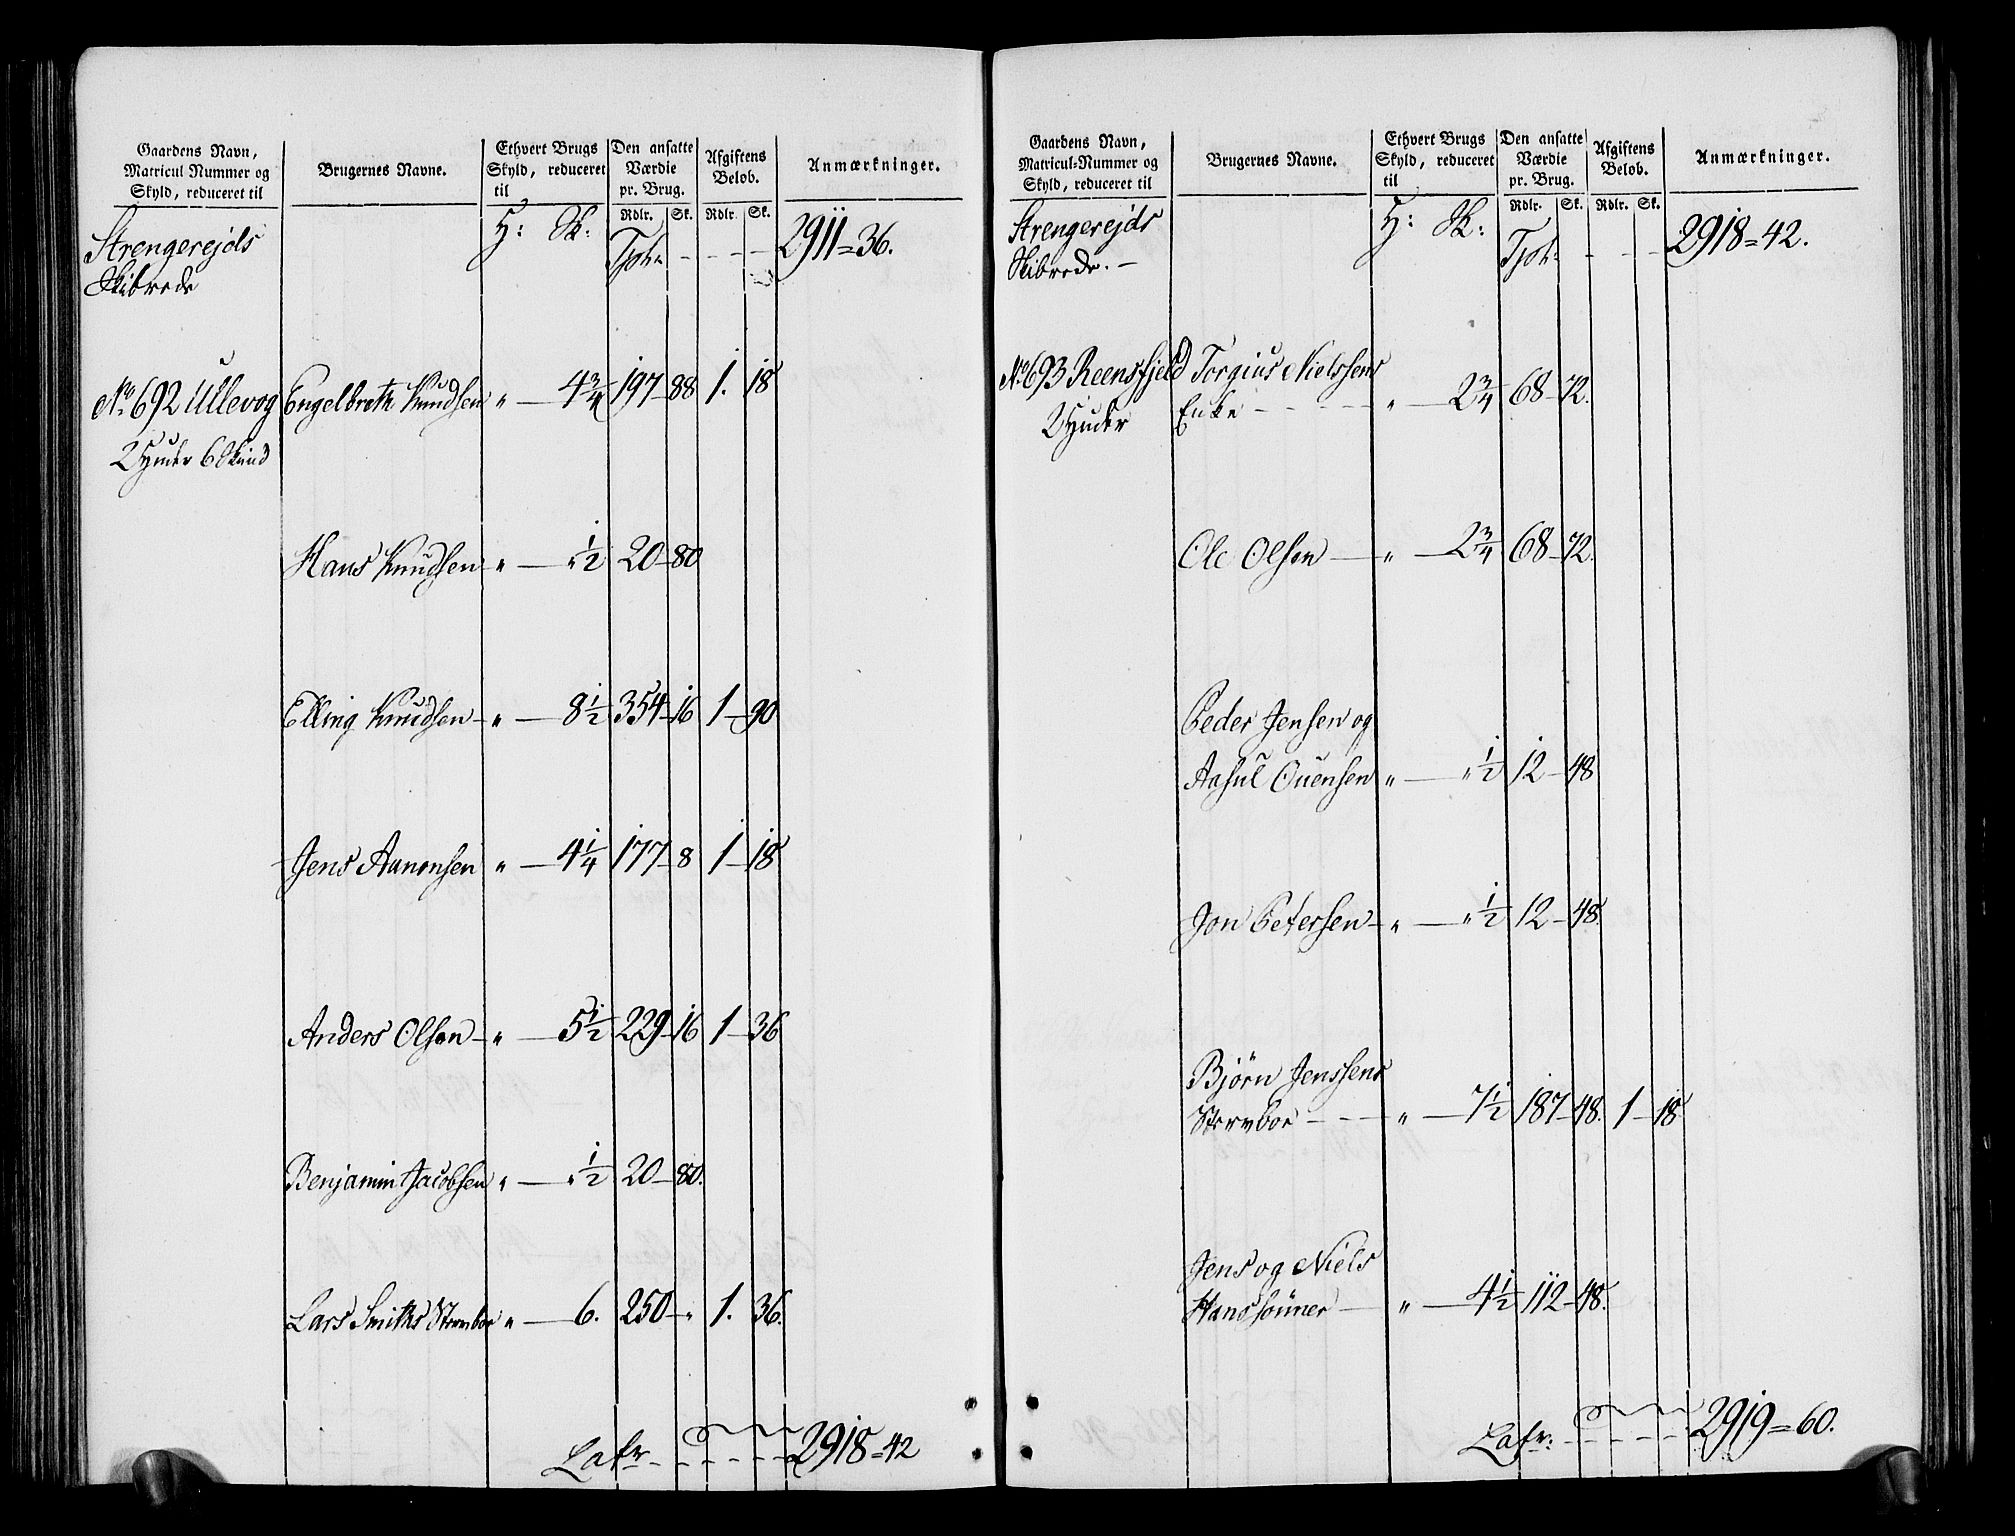 Gaardens Navn,
Matricul Nummer og
Skyld, reduceret til
Brugernes Navne.
Ethvert Brugs
Skyld, reduceret
til
Den ansatte
Værdie
pr. Brug.
Afgiftens
Beløb.
Anmærkninger.
Rdlr. Sk. Rdlr. Sk.
Strengerejds H: Sk: Tpt: - - - - 2911=36.
Skibrede
No. 692 Ullevog Engelbreth Knudsen " — 4¾ 197-88 1. 18
2 Huder 6 Skind
Hans Knudsen - " — " ½ 20-80
Elling Knudsen - " — 8½ 354-16 1-90
Jens Aanonsen " — 4¼ 177-8 1-18
Anders Olsen - " — 5½ 229-16 1-36
Benjamin Jacobsen " — " ½ 20-80.
Lars Smiths Stervboe " — 6. 250-" 1. 36.
Latr. - - - - - 2918=42
Gaardens Navn,
Matricul-Nummer og
Skyld, reduceret til
Brugernes Navne.
Ethvert Brugs
Skyld, reduceret
til
Den ansatte
Værdie
pr. Brug.
Afgiftens
Beløb.
Anmærkninger.
Rdlr. Sk. Rdlr. Sk.
Strengerejds H: Sk: Tpt: - - - 2918=42.
Skibrede. -
No. 693 Reensfjeld Torgius Nielssens
2 Huder Enke - - - - - " — 2¾ 68-72.
Ole Olsen — " — 2¾ 68-72.
Peder Jensen og
Aasul Ouensen " — " ½ 12-48
Jon Petersen - " — " ½ 12-48.
Bjørn Jenssens
Stervboe - - - " — 7½ 187-48. 1-18
Jens og Niels
Hanssønner — " — 4½ 112-48.
Latr: - - - - - 2919=60.